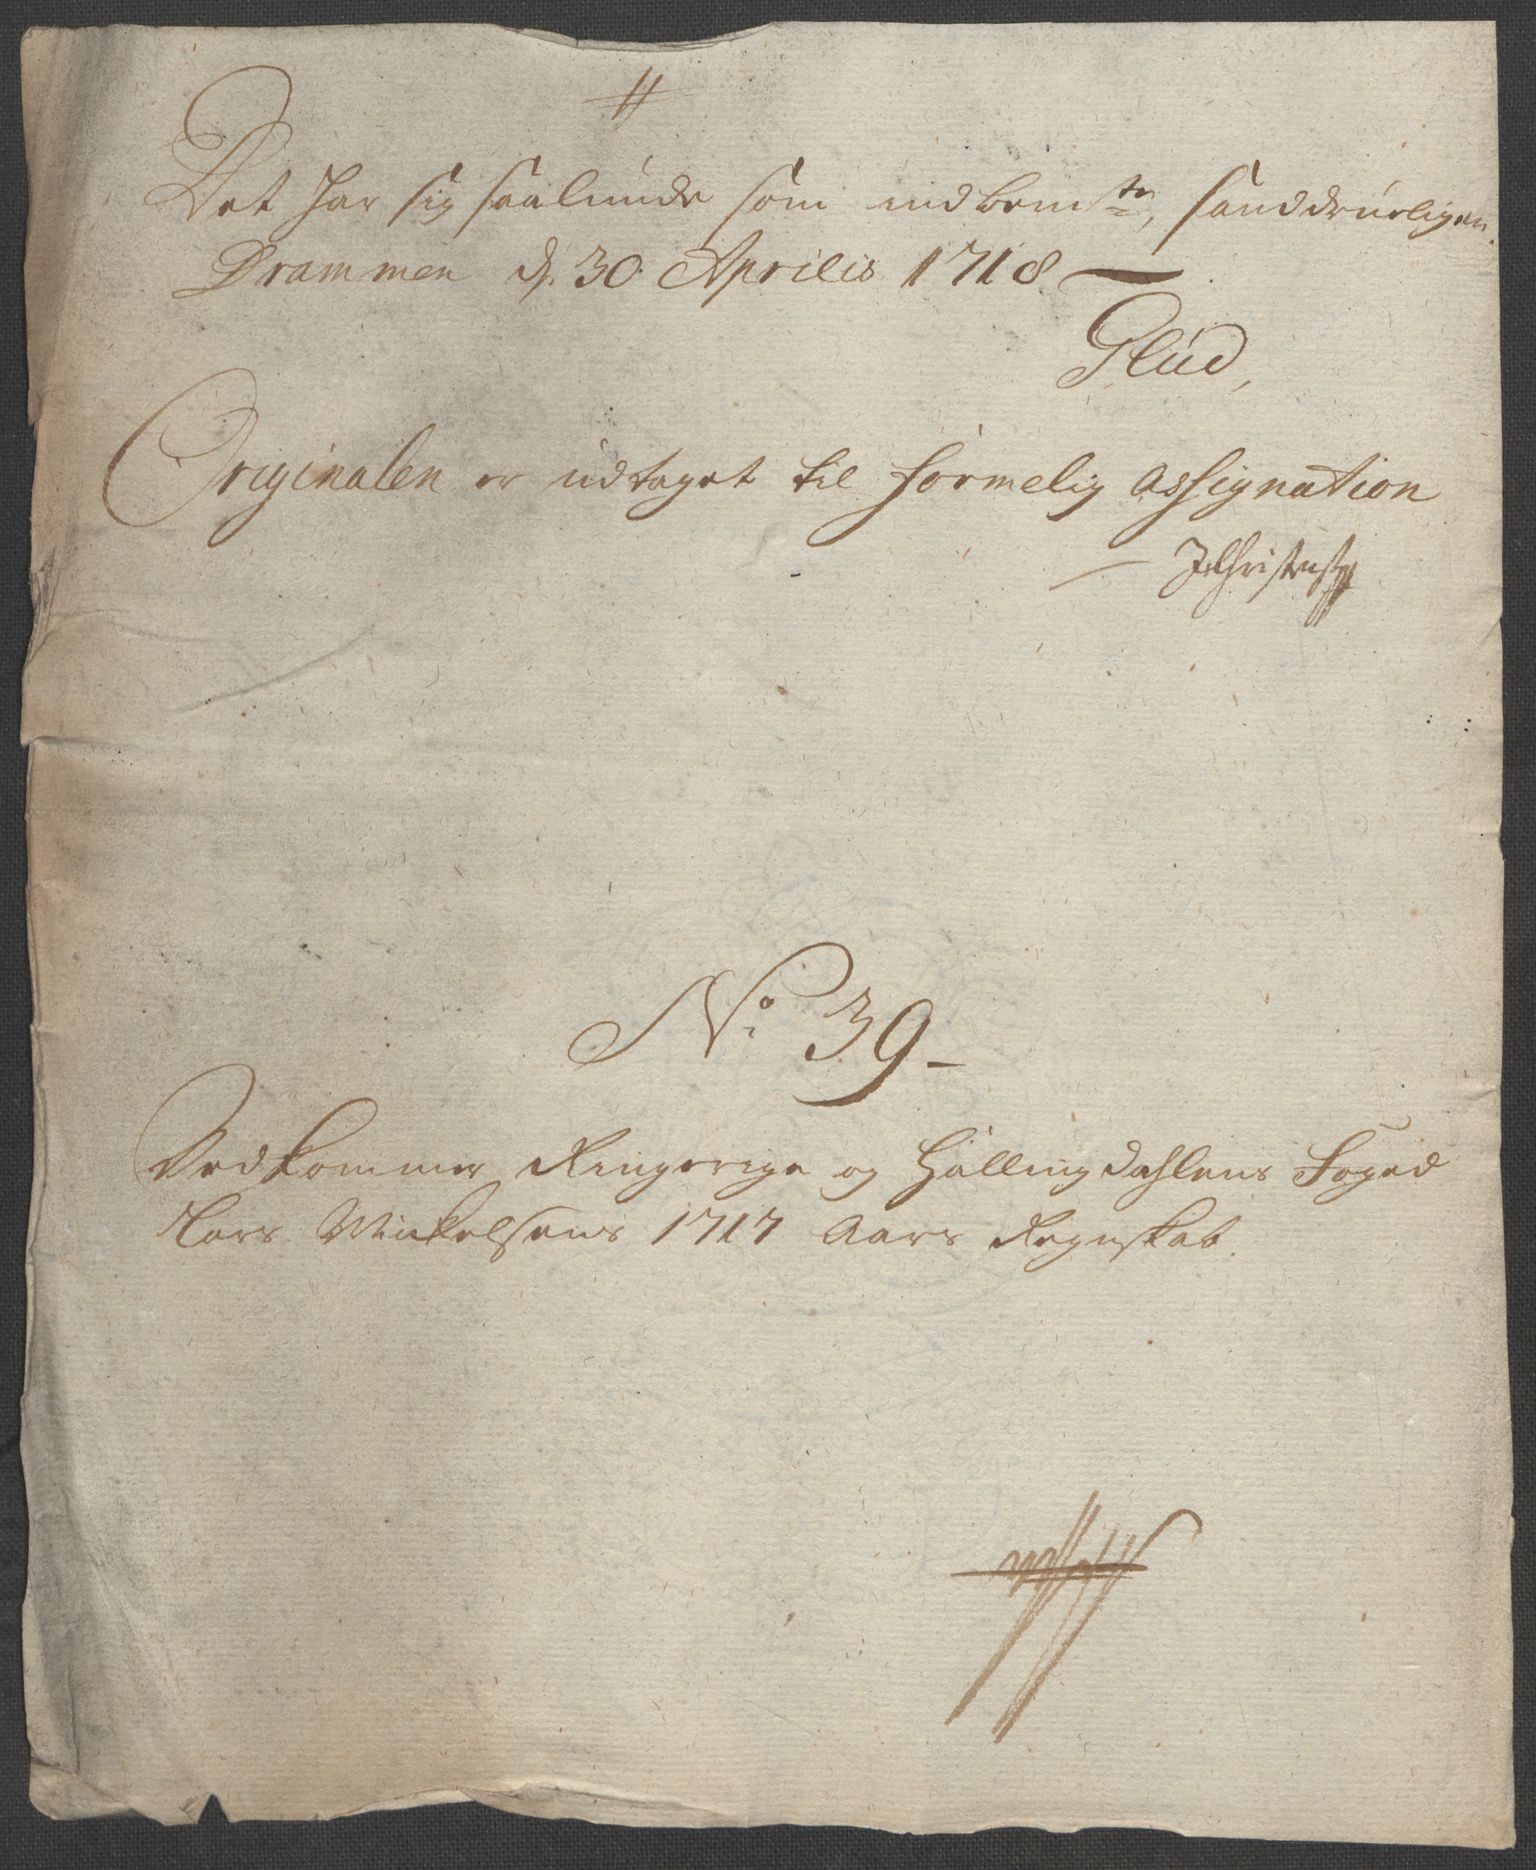 #
Det har sig saalunde som indbem:te, sanddrueligen.
Drammen d. 30 Aprilis 1718 —
Glud,
Originalen er udtaget til formelig Assignation
JChristens
No 39 —
Vedkommer Ringerige og Hallingdahlens Foged
Lars Winkelsens 1717 Aars Regnskab.